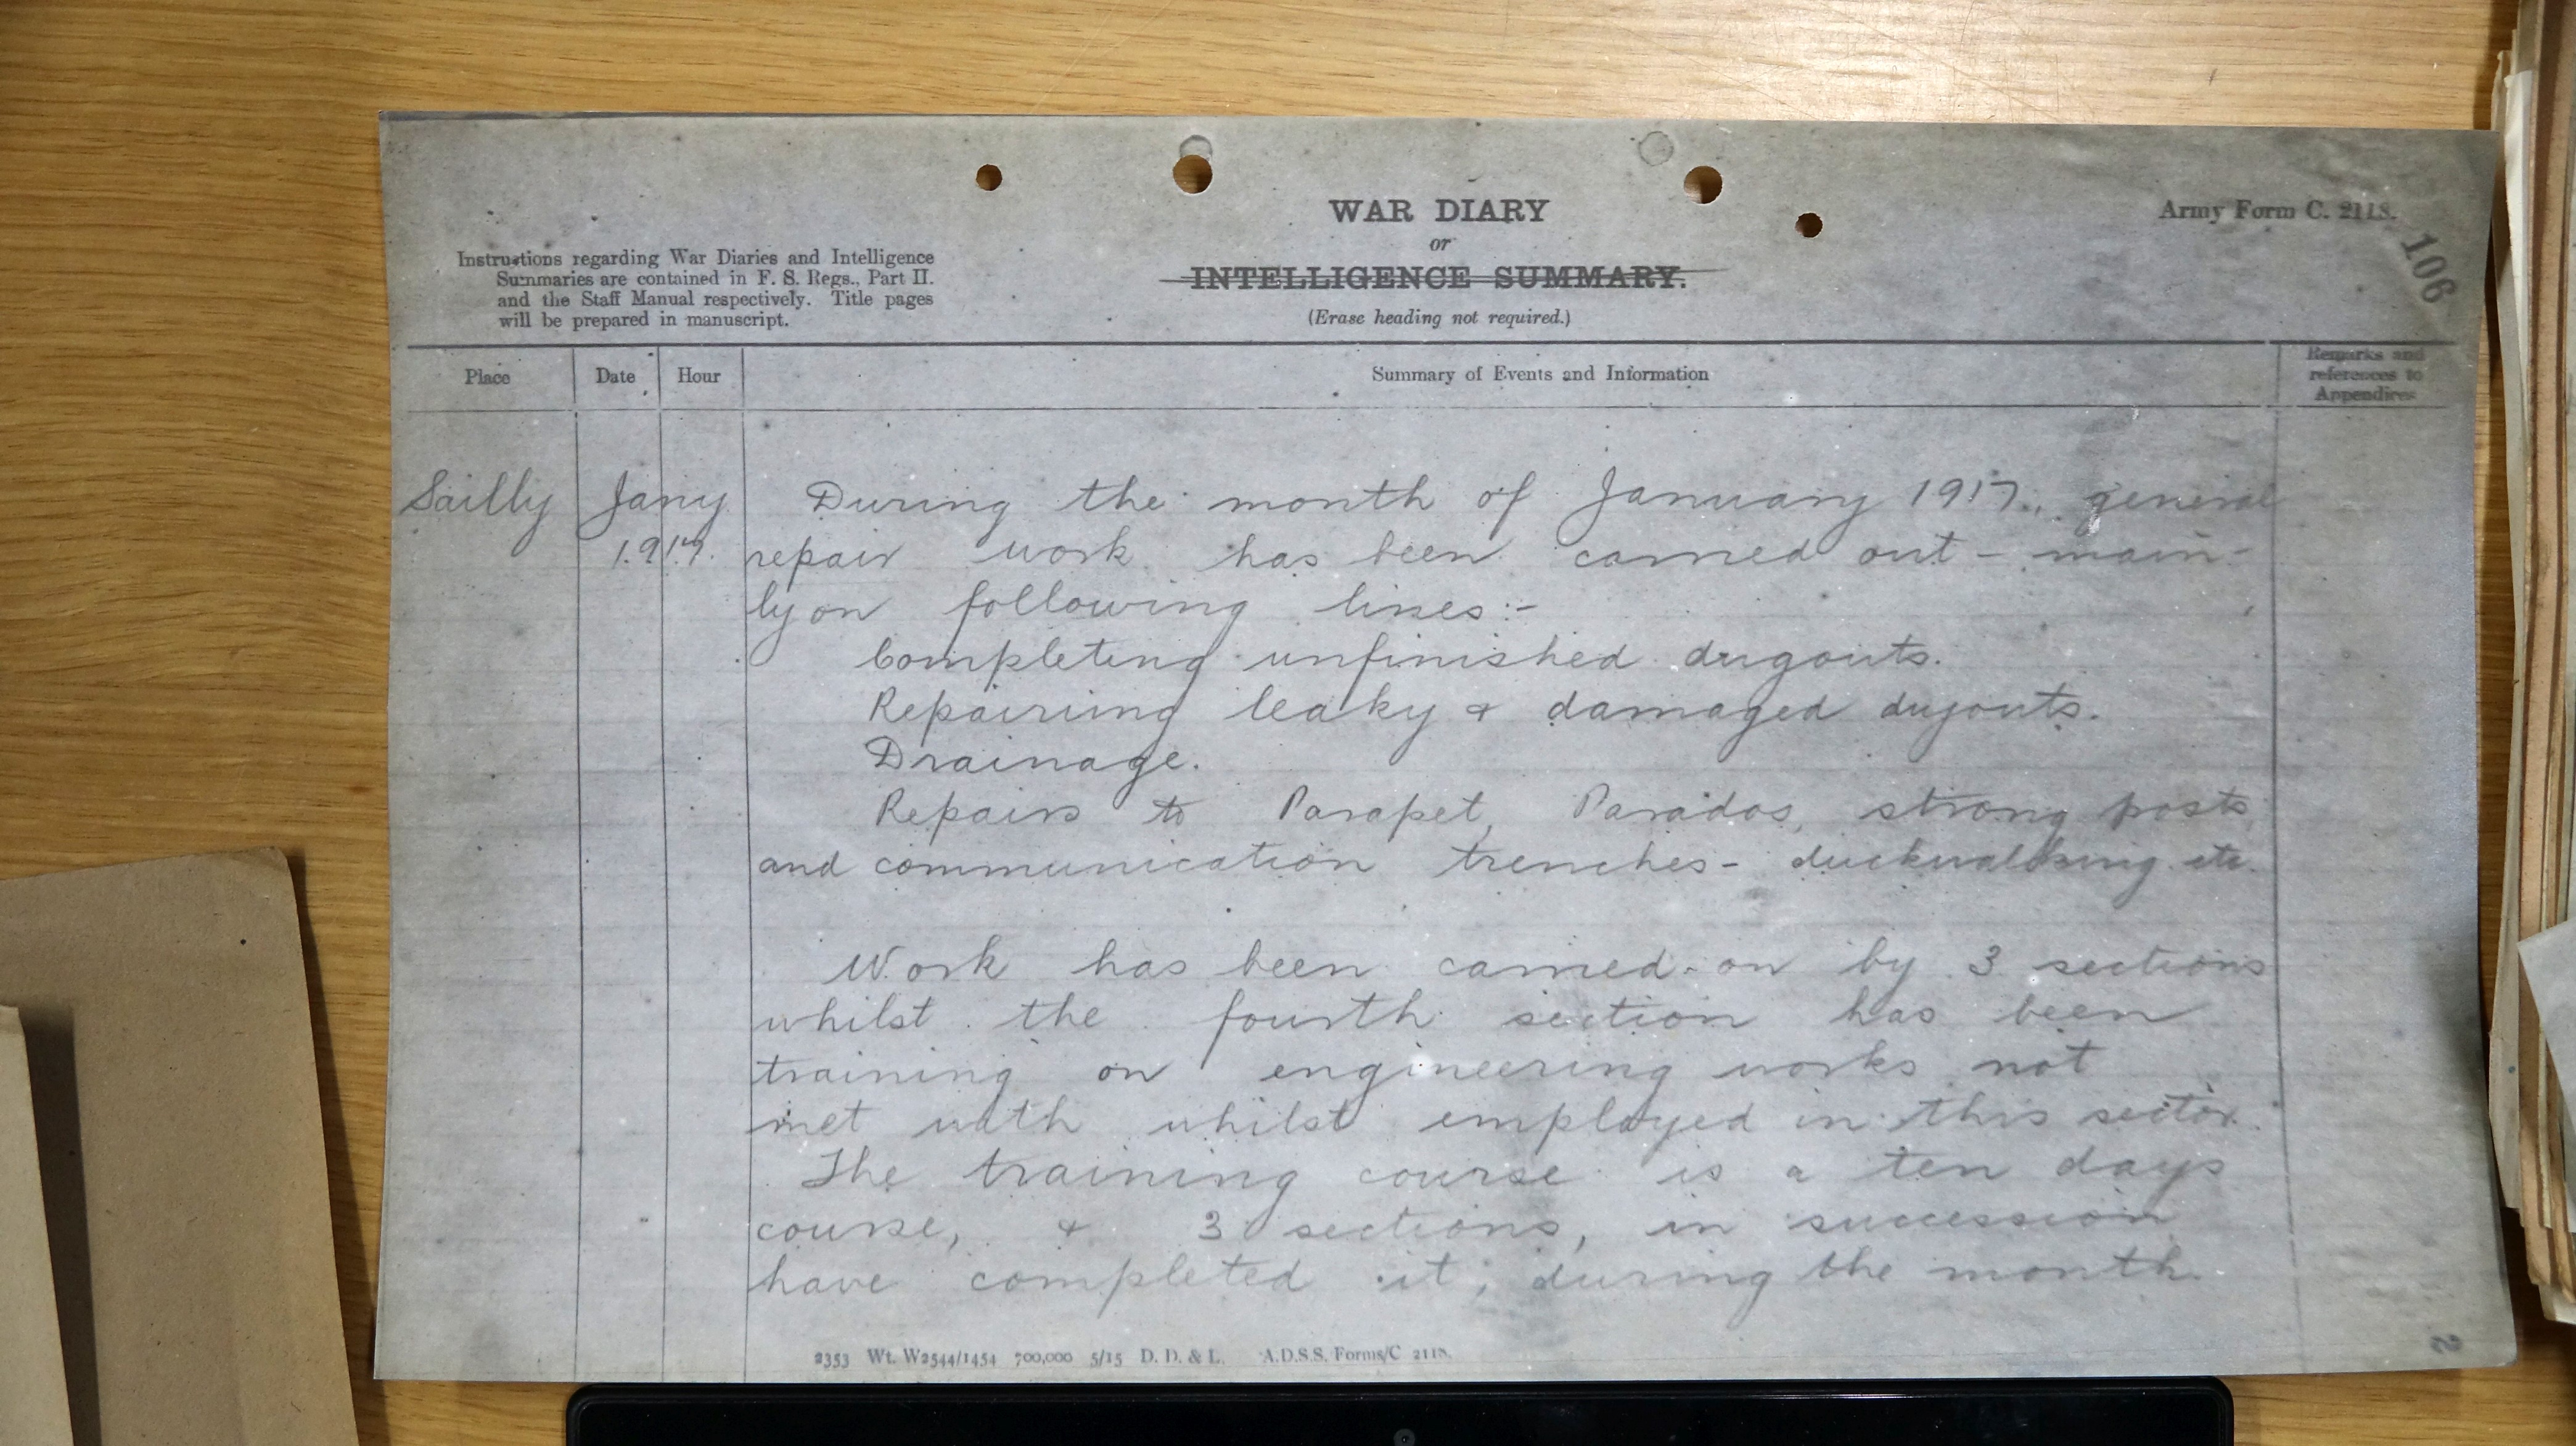 WAR DIARY
or
INTELLIGENCE SUMMARY.
(Erase heading not required.)
Army Form C. 2118.
106
Instructions regarding War Diaries and Intelligence
Summaries are contained in F. S. Regs., Part II.
and the Staff Manual respectively. Title pages
will be prepared in manuscript.
Place Date Hour Summary of Events and Information Remarks and references to Appendices
Sailly Jany 1917.
During the month of January 1917, general
repair work has been carried out - main-
ly on following lines:-
Completing unfinished dugouts.
Repairing leaky & damaged dugouts.
Drainage.
Repairs to Parapet, Parados, strong posts
and communication trenches - duckwalking etc.
Work has been carried on by 3 sections
whilst the fourth section has been
training on engineering works not
met with whilst employed in this sector.
The training course is a ten days
course, & 3 sections, in succession
have completed it, during the month.
2353 Wt. W2544/1454 700,000 5/15 D. D. & L. A.D.S.S. Forms/C 2118.